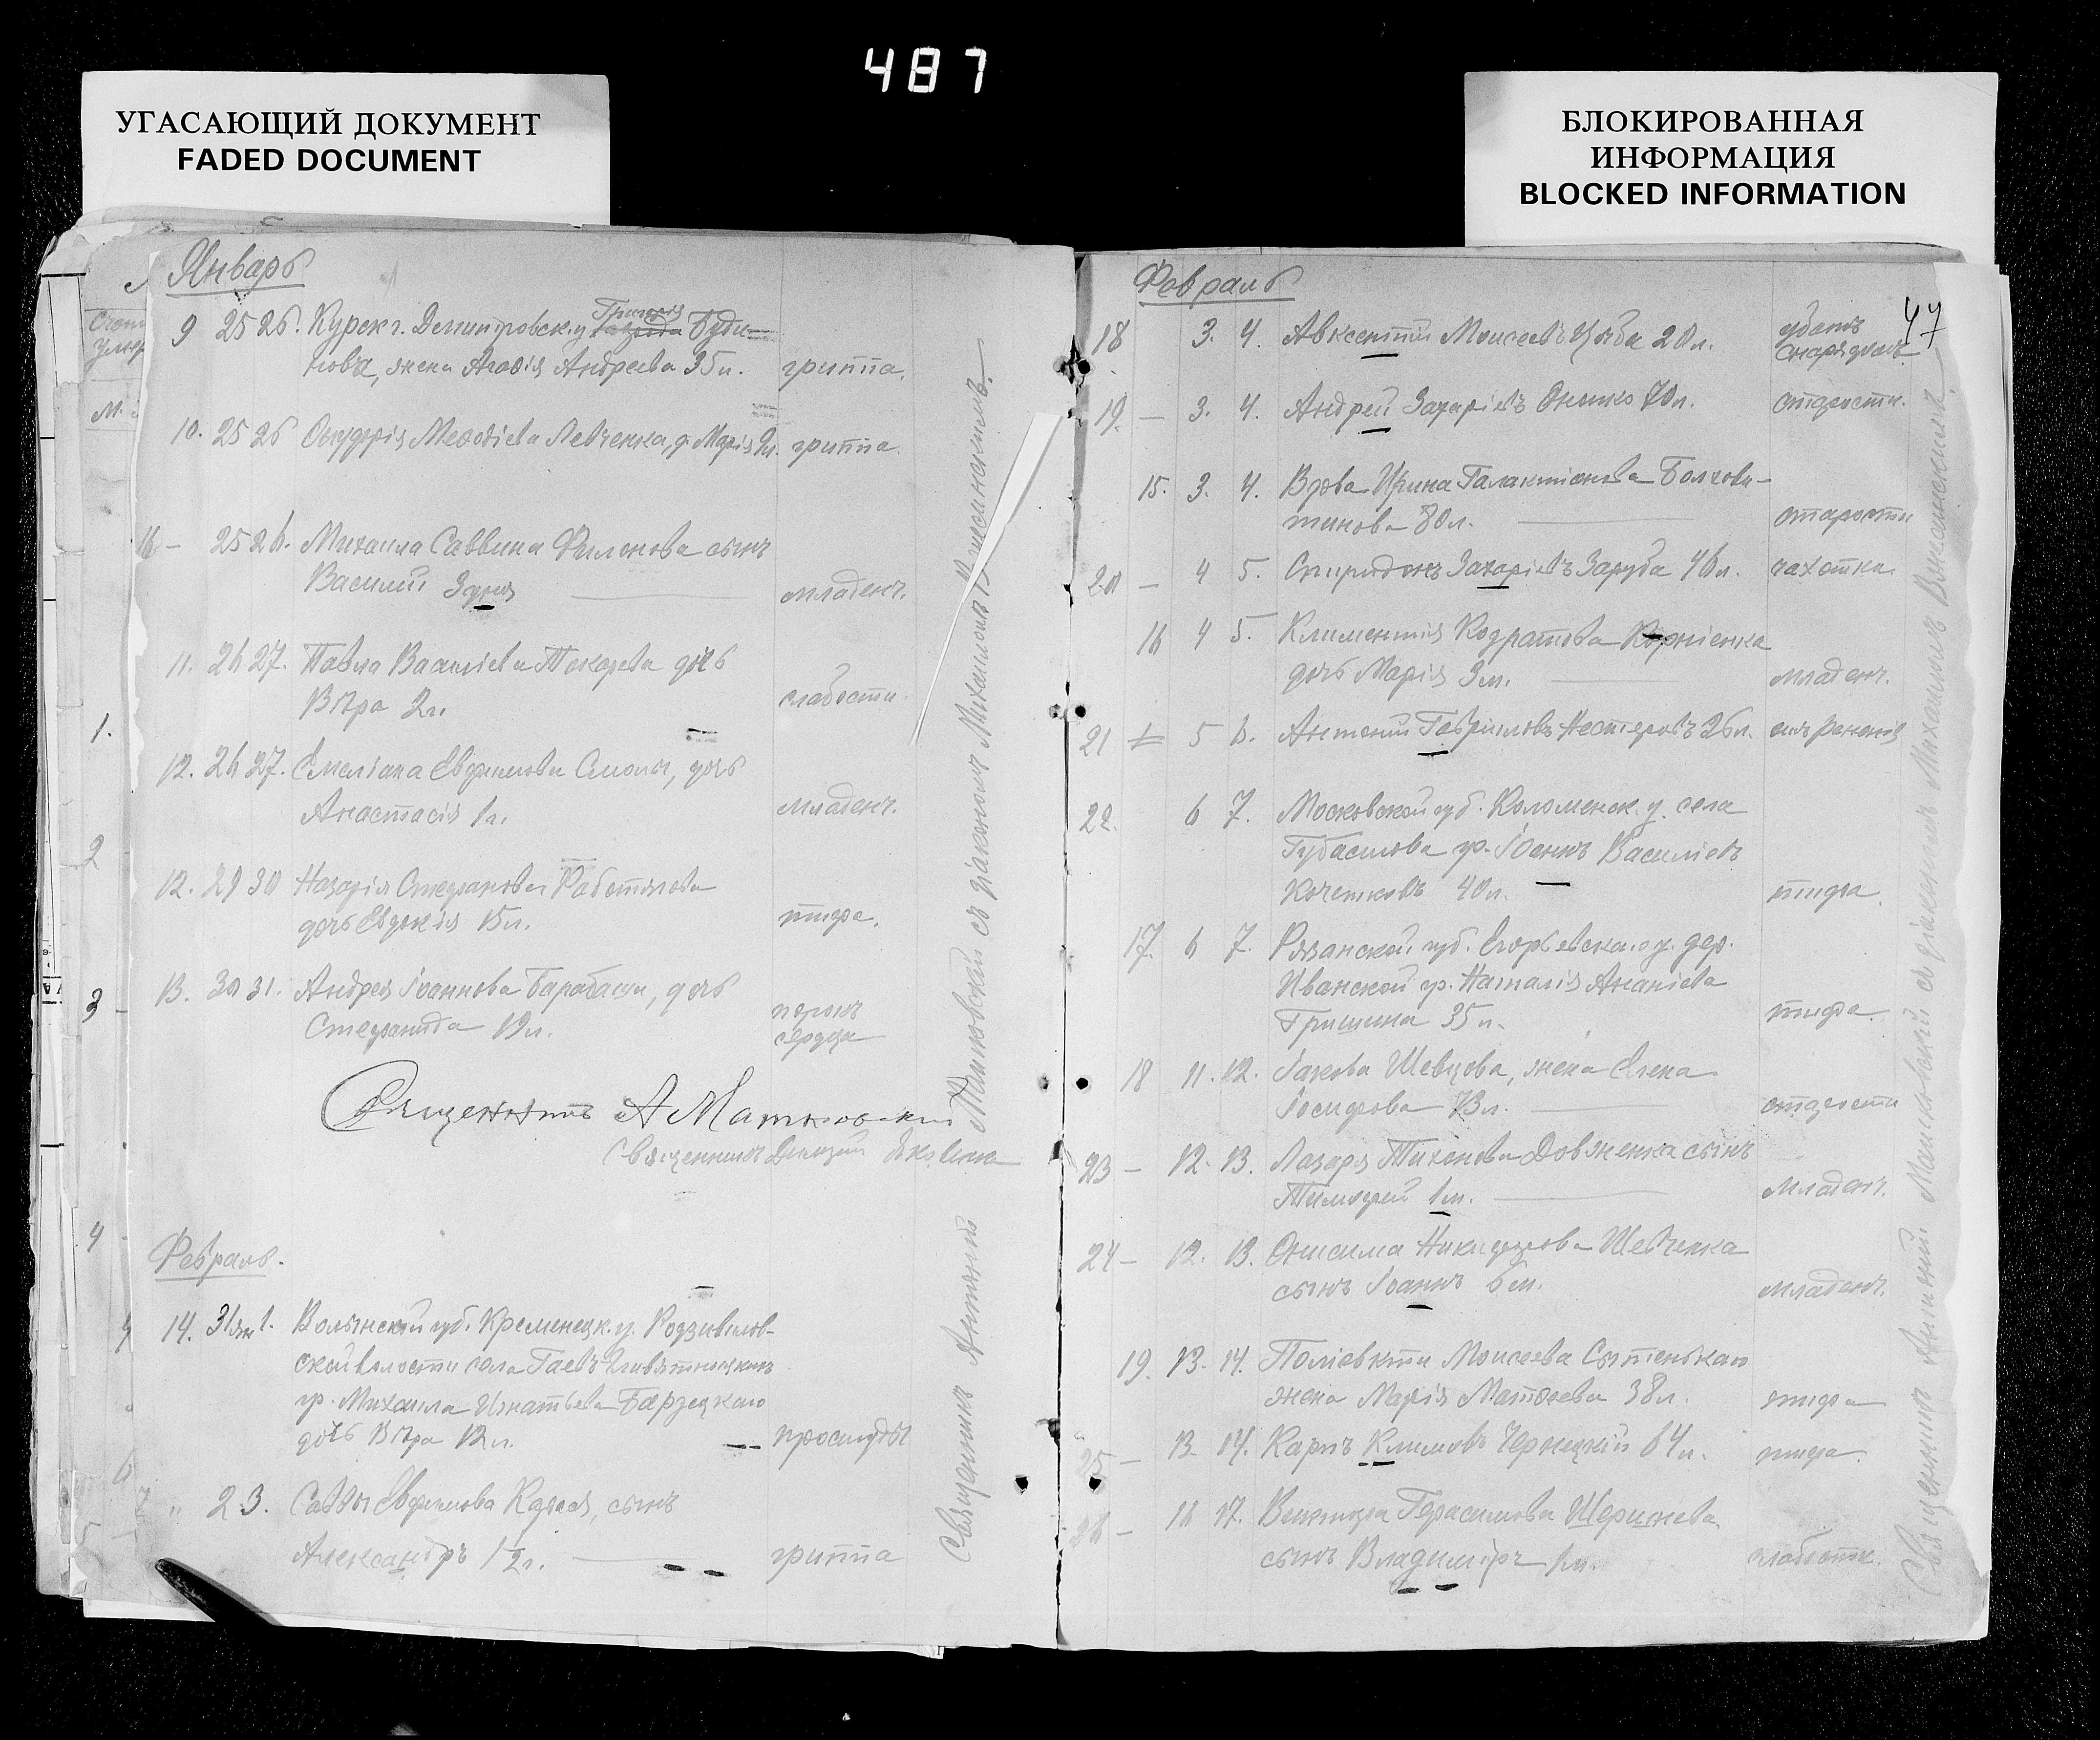 487
УГАСАЮЩИЙ ДОКУМЕНТ
FADED DOCUMENT
БЛОКИРОВАННАЯ
ИНФОРМАЦИЯ
BLOCKED INFORMATION
Январь
9 25 26. Курск г. Демитровск. у Григорія
нова, жена Агафія Андреева 35 л. гриппа.
10. 25 26 Мефодіева Левченка, д. Марія гриппа.
16 – 25 26. Михаила Саввина Филонова сынъ
Василий младенч.
11. 26 27. Павла Василіева Токарева дочь
Вѣра 2 г. слабости.
12. 26 27. Емеліана Евфимова дочь
Анастасія 1 г. младенч.
12. 29 30 Назарія Стефанова Работягова
дочь Евдокія 15 л. тифа.
13. 30 31. Андрея Іоаннова Барабаша, дочь
Стефанида 19 л. порокъ
сердца
Священникъ А Матковскій
Священникъ Яковенко
Февраль.
14. 31 янв 1. Волынской губ. Кременецк. у. Родзивилов-
ской волости села Гаевъ
гр. Михаила Игнатьева Барзецкаго
дочь Вѣра 12 л. простуды
" 2 3. Саввы Евфимова сынъ
Александръ 1/2 г. гриппа
Священникъ Антоній Матковскій съ діакономъ Михаиломъ
47
Февраль
18 3. 4. Авксентій Моисеевъ Цыба 20 л. убитъ
снарядомъ
19. – 3. 4. Андрей Захаріевъ 70 л. старости.
15. 3. 4. Вдова Ирина Галактіонова Болхови-
тинова 80 л. старости
20 – 4 5. Спиридонъ Захаріевъ Заруба 46 л. чахотка
16 4 5. Климентія Кодратова
дочь Марія 3 м. младенч.
21 5 6. Антоній Гавриловъ Нестеровъ 26 л. отъ раненія
22. 6 7. Московской губ. Коломенск. у. села
гр. Іоаннъ Василіевъ
Кочетковъ 40 л. тифа.
17. 6 7. Рязанской губ. Егорьевска. о у. дер.
Иванской гр. Наталія Ананіева
Гришина 35 л. тифа.
18 11. 12. Іакова Шевцова, жена Елена
Іосифова 73 л. старости
23 – 12. 13. Лазаря Тихонова Довженка сынъ
Тимофей 1 м. младенч.
24 – 12. 13. Онисима Никифорова Шевченка
сынъ Іоаннъ 6 м. младенч.
19. 13. 14. Поліевкта Моисеева Сытенькаго
жена Марія Матфеева 38 л. тифа
25 – 13. 14. Карпъ Климовъ Чернецкій 64 л. тифа.
26 – 16 17. Виктора Герасимова
сынъ Владиміръ слабости.
Священникъ Антоній Матковскій съ діакономъ Михаиломъ